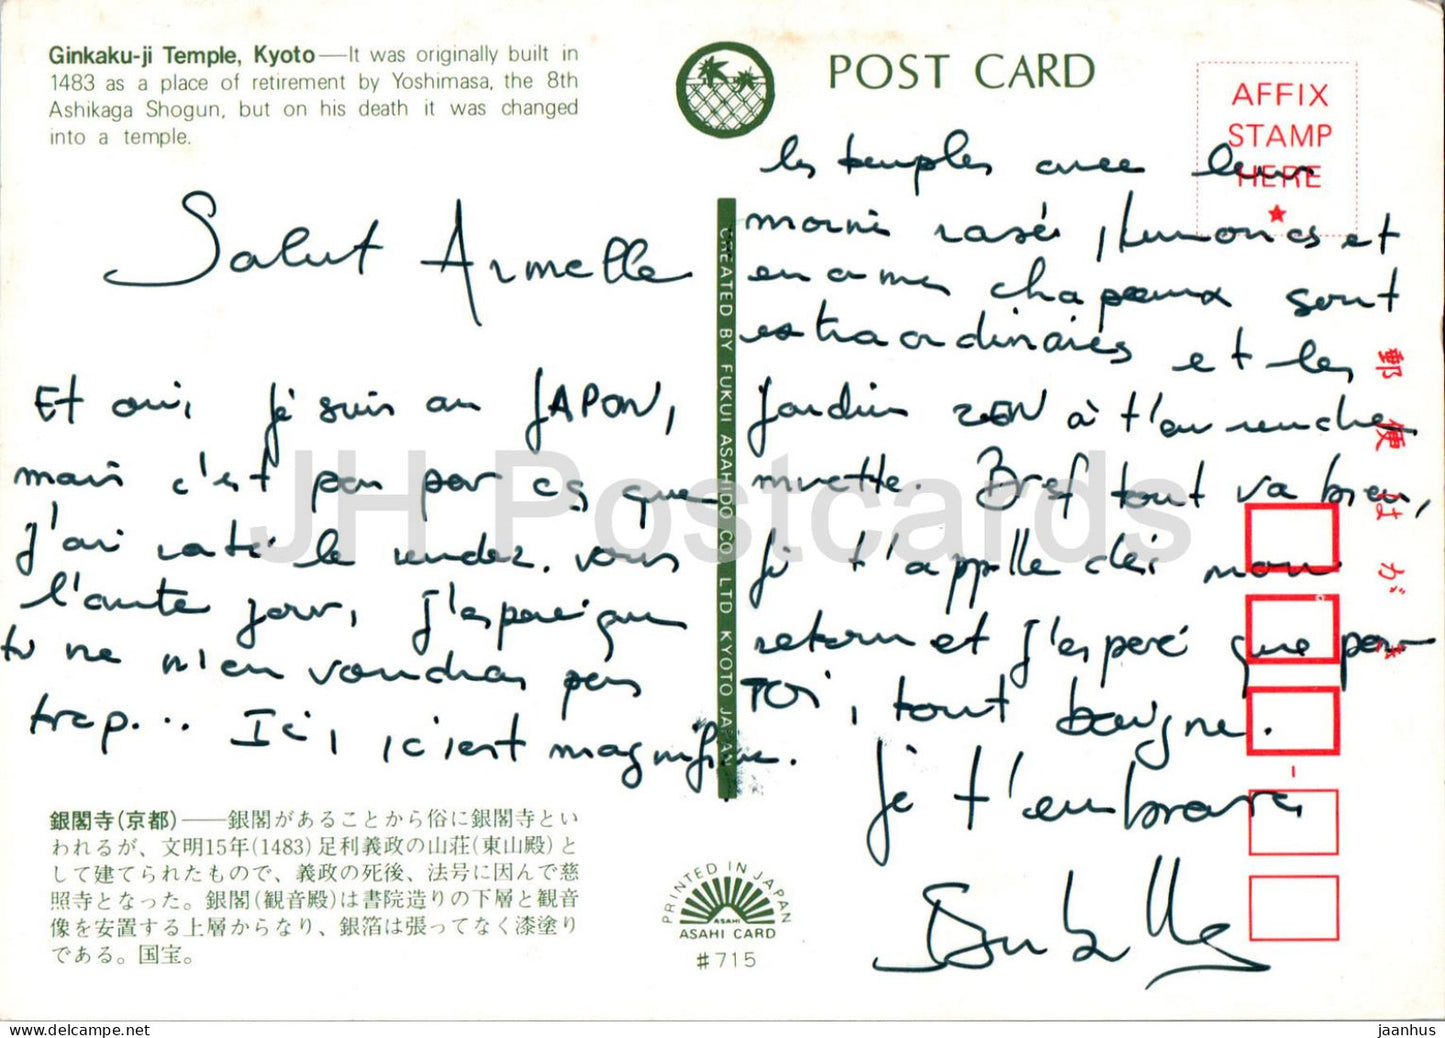 Ginkaku-ji Temple, Kyoto—It was originally built in
1483 as a place of retirement by Yoshimasa, the 8th
Ashikaga Shogun, but on his death it was changed
into a temple.
POST CARD
AFFIX
STAMP
HERE
Salut Armelle
Et oui, je suis au JAPON,
mais c'est pas parce que
j'ai raté le rendez-vous
l'autre jour, j'espère que
tu ne m'en voudras pas
trop... Ici, c'est magnifique.
les temples avec leurs
moines rasés, kimonos et
énormes chapeaux sont
extraordinaires et les
jardins ZEN à t'en rendre
muette. Bref tout va bien,
je t'appelle dès mon
retour et j'espère que pour
TOI, tout baigne.
je t'embrasse
CREATED BY FUKUI ASAHIDO CO LTD KYOTO JAPAN
郵便はがき
銀閣寺(京都)——銀閣があることから俗に銀閣寺とい
われるが、文明15年(1483)足利義政の山荘(東山殿)と
して建てられたもので、義政の死後、法号に因んで慈
照寺となった。銀閣(観音殿)は書院造りの下層と観音
像を安置する上層からなり、銀箔は張ってなく漆塗り
である。国宝。
PRINTED IN JAPAN
ASAHI
ASAHI CARD
#715
JH Postcards
jaanhus